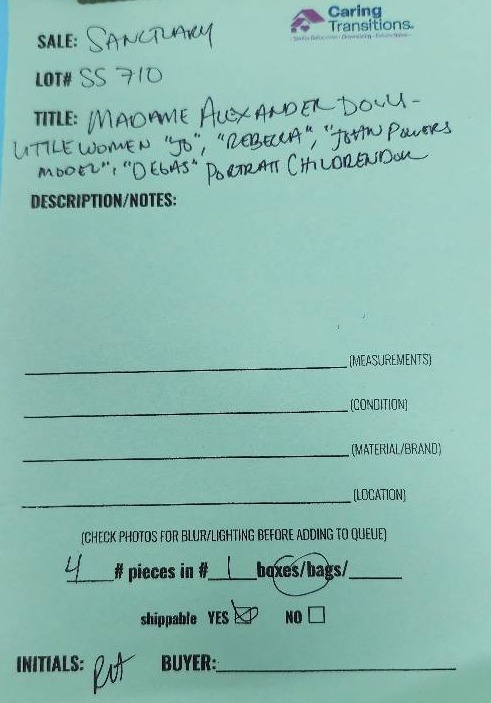 Caring
Transitions.
SALE: SANCTUARY
LOT# SS 710
TITLE: MADAME ALEXANDER DOLLS -
LITTLE WOMEN "JO", "REBECCA", "JOHN POWERS
MODEL", "DEGAS" PORTRAIT CHILDREN DOLL
DESCRIPTION/NOTES:
(MEASUREMENTS)
(CONDITION)
(MATERIAL/BRAND)
(LOCATION)
(CHECK PHOTOS FOR BLUR/LIGHTING BEFORE ADDING TO QUEUE)
4 # pieces in # 1 boxes/bags/
shippable YES NO
INITIALS: BUYER: